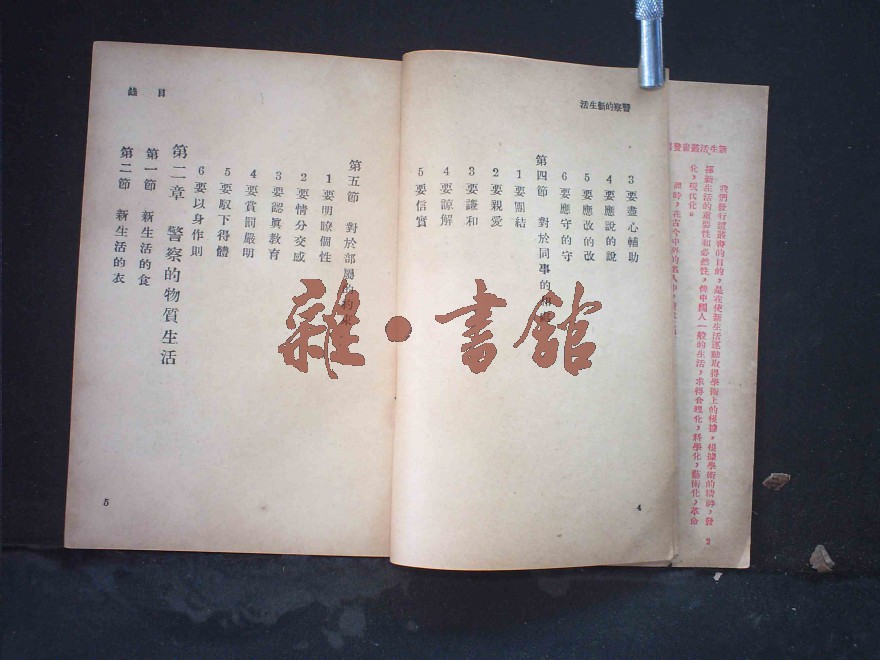 警察的新生活
3 要盡心輔助
4 要應說的說
5 要應改的改
6 要應守的守
第四節 對於同事的
1 要團結
2 要親愛
3 要謙和
4 要諒解
5 要信實
4
目 錄
第五節 對於部屬的
1 要明瞭個性
2 要情分交感
3 要認眞教育
4 要賞罰嚴明
5 要馭下得體
6 要以身作則
第二章 警察的物質生活
第一節 新生活的食
第二節 新生活的衣
5
新生活叢書發
我們發行這叢書的目的，是在使新生活運動取得學術上的根據，根據學術的精神，發
揮新生活的重要性和必然性，使中國人一般的生活，求得合理化，科學化，藝術化，革命
化，現代化。
同時，在古今中外的名人中，
2
雜·書館